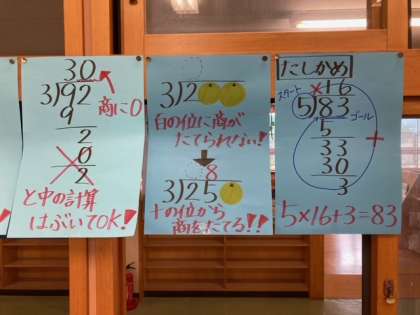 30
3)92
9
2
0
2
商に0
と中の計算
はぶいてOK!
3)2
百の位に商が
たてられない!
8
3)25
十の位から
商をたてる!!
たしかめ
スタート
×16
5)83
ゴール
5
+
33
30
3
5×16+3=83